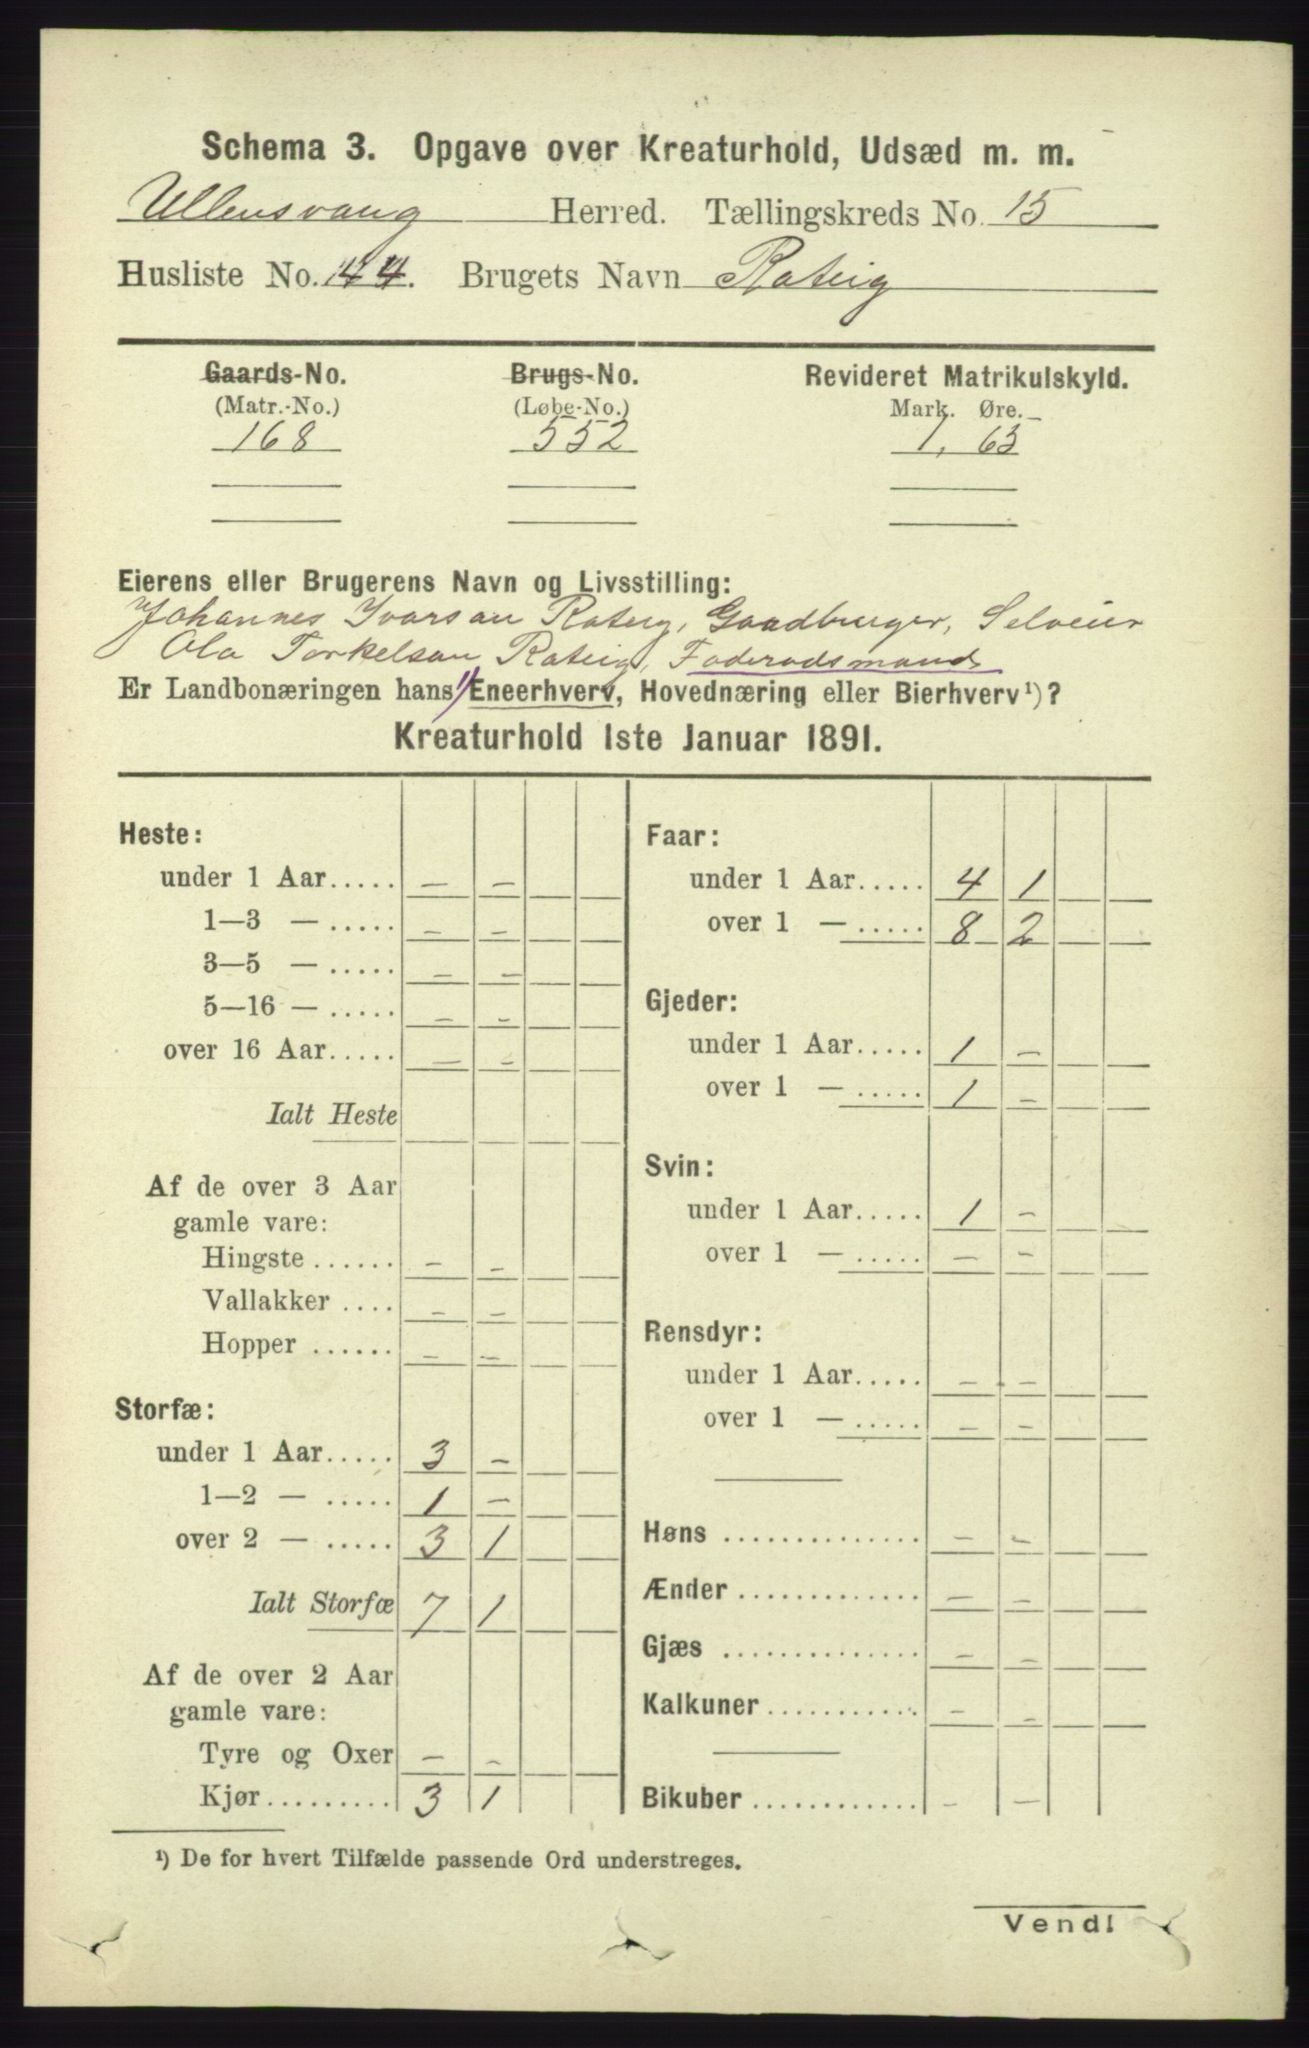 Schema 3. Opgave over Kreaturhold, Udsæd m. m.
Ullensvang Herred. Tællingskreds No. 15
Husliste No. 44. Brugets Navn Rateig
Gaards-No. Brugs-No. Revideret Matrikulskyld.
(Matr.-No.) (Løbe-No.) Mark. Øre.
168 552 1, 63
Eierens eller Brugerens Navn og Livsstilling:
Johannes Ivarsan Rateig, Gaardbruger, Selveier
Ola Torkelsan Rateig, Foderaadsmand
Er Landbonæringen hans Eneerhverv, Hovednæring eller Bierhverv¹)?
Kreaturhold 1ste Januar 1891.
Heste:
under 1 Aar..... — —
1—3 — ..... — —
3—5 — ..... — —
5—16 — ..... — —
over 16 Aar..... — —
Ialt Heste
Af de over 3 Aar
gamle vare:
Hingste ...... — —
Vallakker .... — —
Hopper ...... — —
Storfæ:
under 1 Aar..... 3 —
1—2 — ..... 1 —
over 2 — ..... 3 1
Ialt Storfæ 7 1
Af de over 2 Aar
gamle vare:
Tyre og Oxer — —
Kjør......... 3 1
Faar:
under 1 Aar..... 4 1
over 1 — ..... 8 2
Gjeder:
under 1 Aar..... 1 —
over 1 — ..... 1 —
Svin:
under 1 Aar..... 1 —
over 1 — ..... — —
Rensdyr:
under 1 Aar..... — —
over 1 — ..... — —
Høns .............. — —
Ænder .............. — —
Gjæs .............. — —
Kalkuner ........... — —
Bikuber ............ — —
¹) De for hvert Tilfælde passende Ord understreges.
Vend!